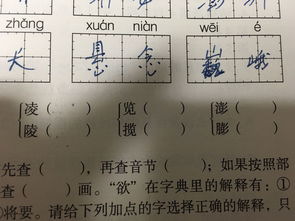 zhǎng xuán niàn wēi é
大 悬念 巍峨
凌（ ） 览（ ） 澎（ ）
陵（ ） 揽（ ） 膨（ ）
先查（ ），再查音节（ ）；如果按照部
查（ ）画。“欲”在字典里的解释有：①
将要。请给下列加点的字选择正确的解释，只